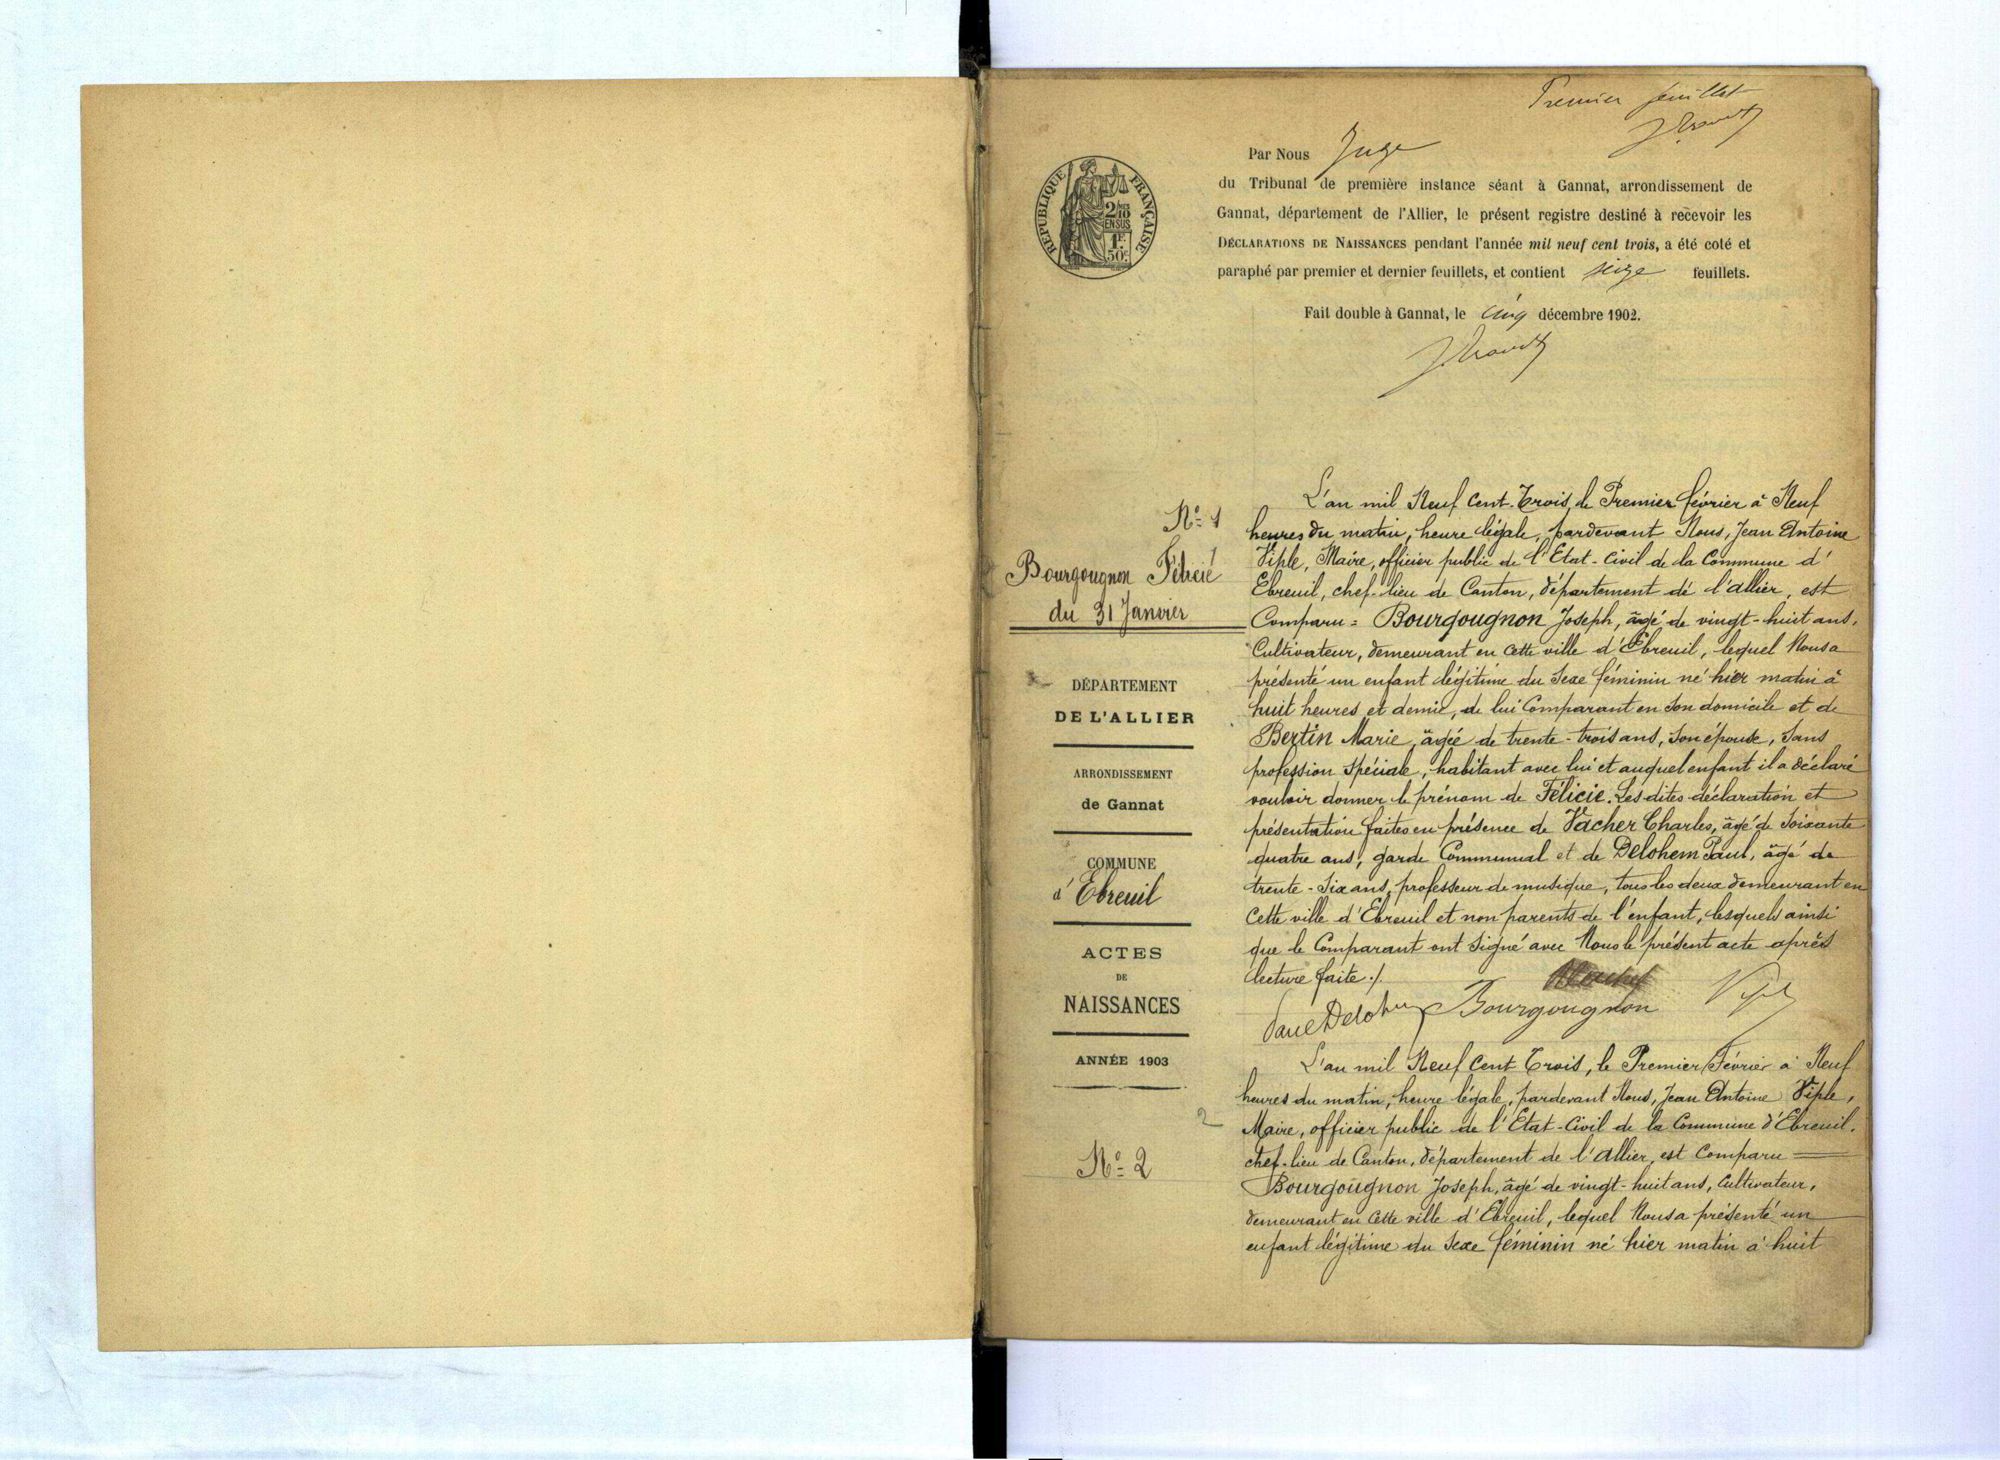 Premier feuillet
RÉPUBLIQUE FRANÇAISE
2/10
EN SUS
1F.
50c.
Par Nous Juge
du Tribunal de première instance séant à Gannat, arrondissement de
Gannat, département de l'Allier, le présent registre destiné à recevoir les
DÉCLARATIONS DE NAISSANCES pendant l'année mil neuf cent trois, a été coté et
paraphé par premier et dernier feuillets, et contient seize feuillets.
Fait double à Gannat, le cinq décembre 1902.
No 1
Bourgougnon Félicie
du 31 Janvier
DÉPARTEMENT
DE L'ALLIER
ARRONDISSEMENT
de Gannat
COMMUNE
d'Ebreuil
ACTES
DE
NAISSANCES
ANNÉE 1903
L'an mil Neuf Cent Trois, le Premier février à Neuf
heures du matin, heure légale, pardevant Nous, Jean Antoine
Viple, Maire, officier public de l'Etat-Civil de la Commune d'
Ebreuil, chef-lieu de Canton, département de l'Allier, est
Comparu = Bourgougnon Joseph, âgé de vingt-huit ans,
Cultivateur, demeurant en cette ville d'Ebreuil, lequel Nous a
présenté un enfant légitime du sexe féminin né hier matin à
huit heures et demie, de lui Comparant en son domicile et de
Bertin Marie, âgée de trente-trois ans, son épouse, sans
profession spéciale, habitant avec lui et auquel enfant il a déclaré
vouloir donner le prénom de Félicie. Les dites déclaration et
présentation faites en présence de Vacher Charles, âgé de soixante
quatre ans, garde Communal et de Delohem Paul, âgé de
trente-six ans, professeur de musique, tous les deux demeurant en
cette ville d'Ebreuil et non parents de l'enfant, lesquels ainsi
que le Comparant ont signé avec Nous le présent acte après
lecture faite ./.
Vacher
Paul Delohem Bourgougnon Viple
L'an mil Neuf Cent Trois, le Premier Février à Neuf
heures du matin, heure légale, pardevant Nous, Jean Antoine Viple,
2
Maire, officier public de l'Etat-Civil de la Commune d'Ebreuil,
No 2
chef-lieu de Canton, département de l'Allier, est Comparu =
Bourgougnon Joseph, âgé de vingt-huit ans, Cultivateur,
demeurant en cette ville d'Ebreuil, lequel Nous a présenté un
enfant légitime du sexe féminin né hier matin à huit